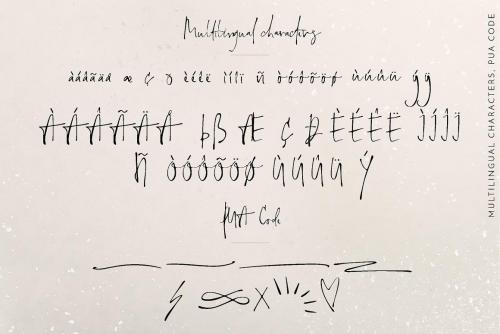 Multilingual characters
àáâãäå æ ç ð èéêë ìíîï ñ òóôõöø ùúûü ýÿ
ÀÁÂÃÄÅ þß Æ ç Ð ÈÉÊË ÌÍÎÏ
Ñ òóôõöø ÙÚÛÜ Ý
PUA Code
MULTILINGUAL CHARACTERS, PUA CODE